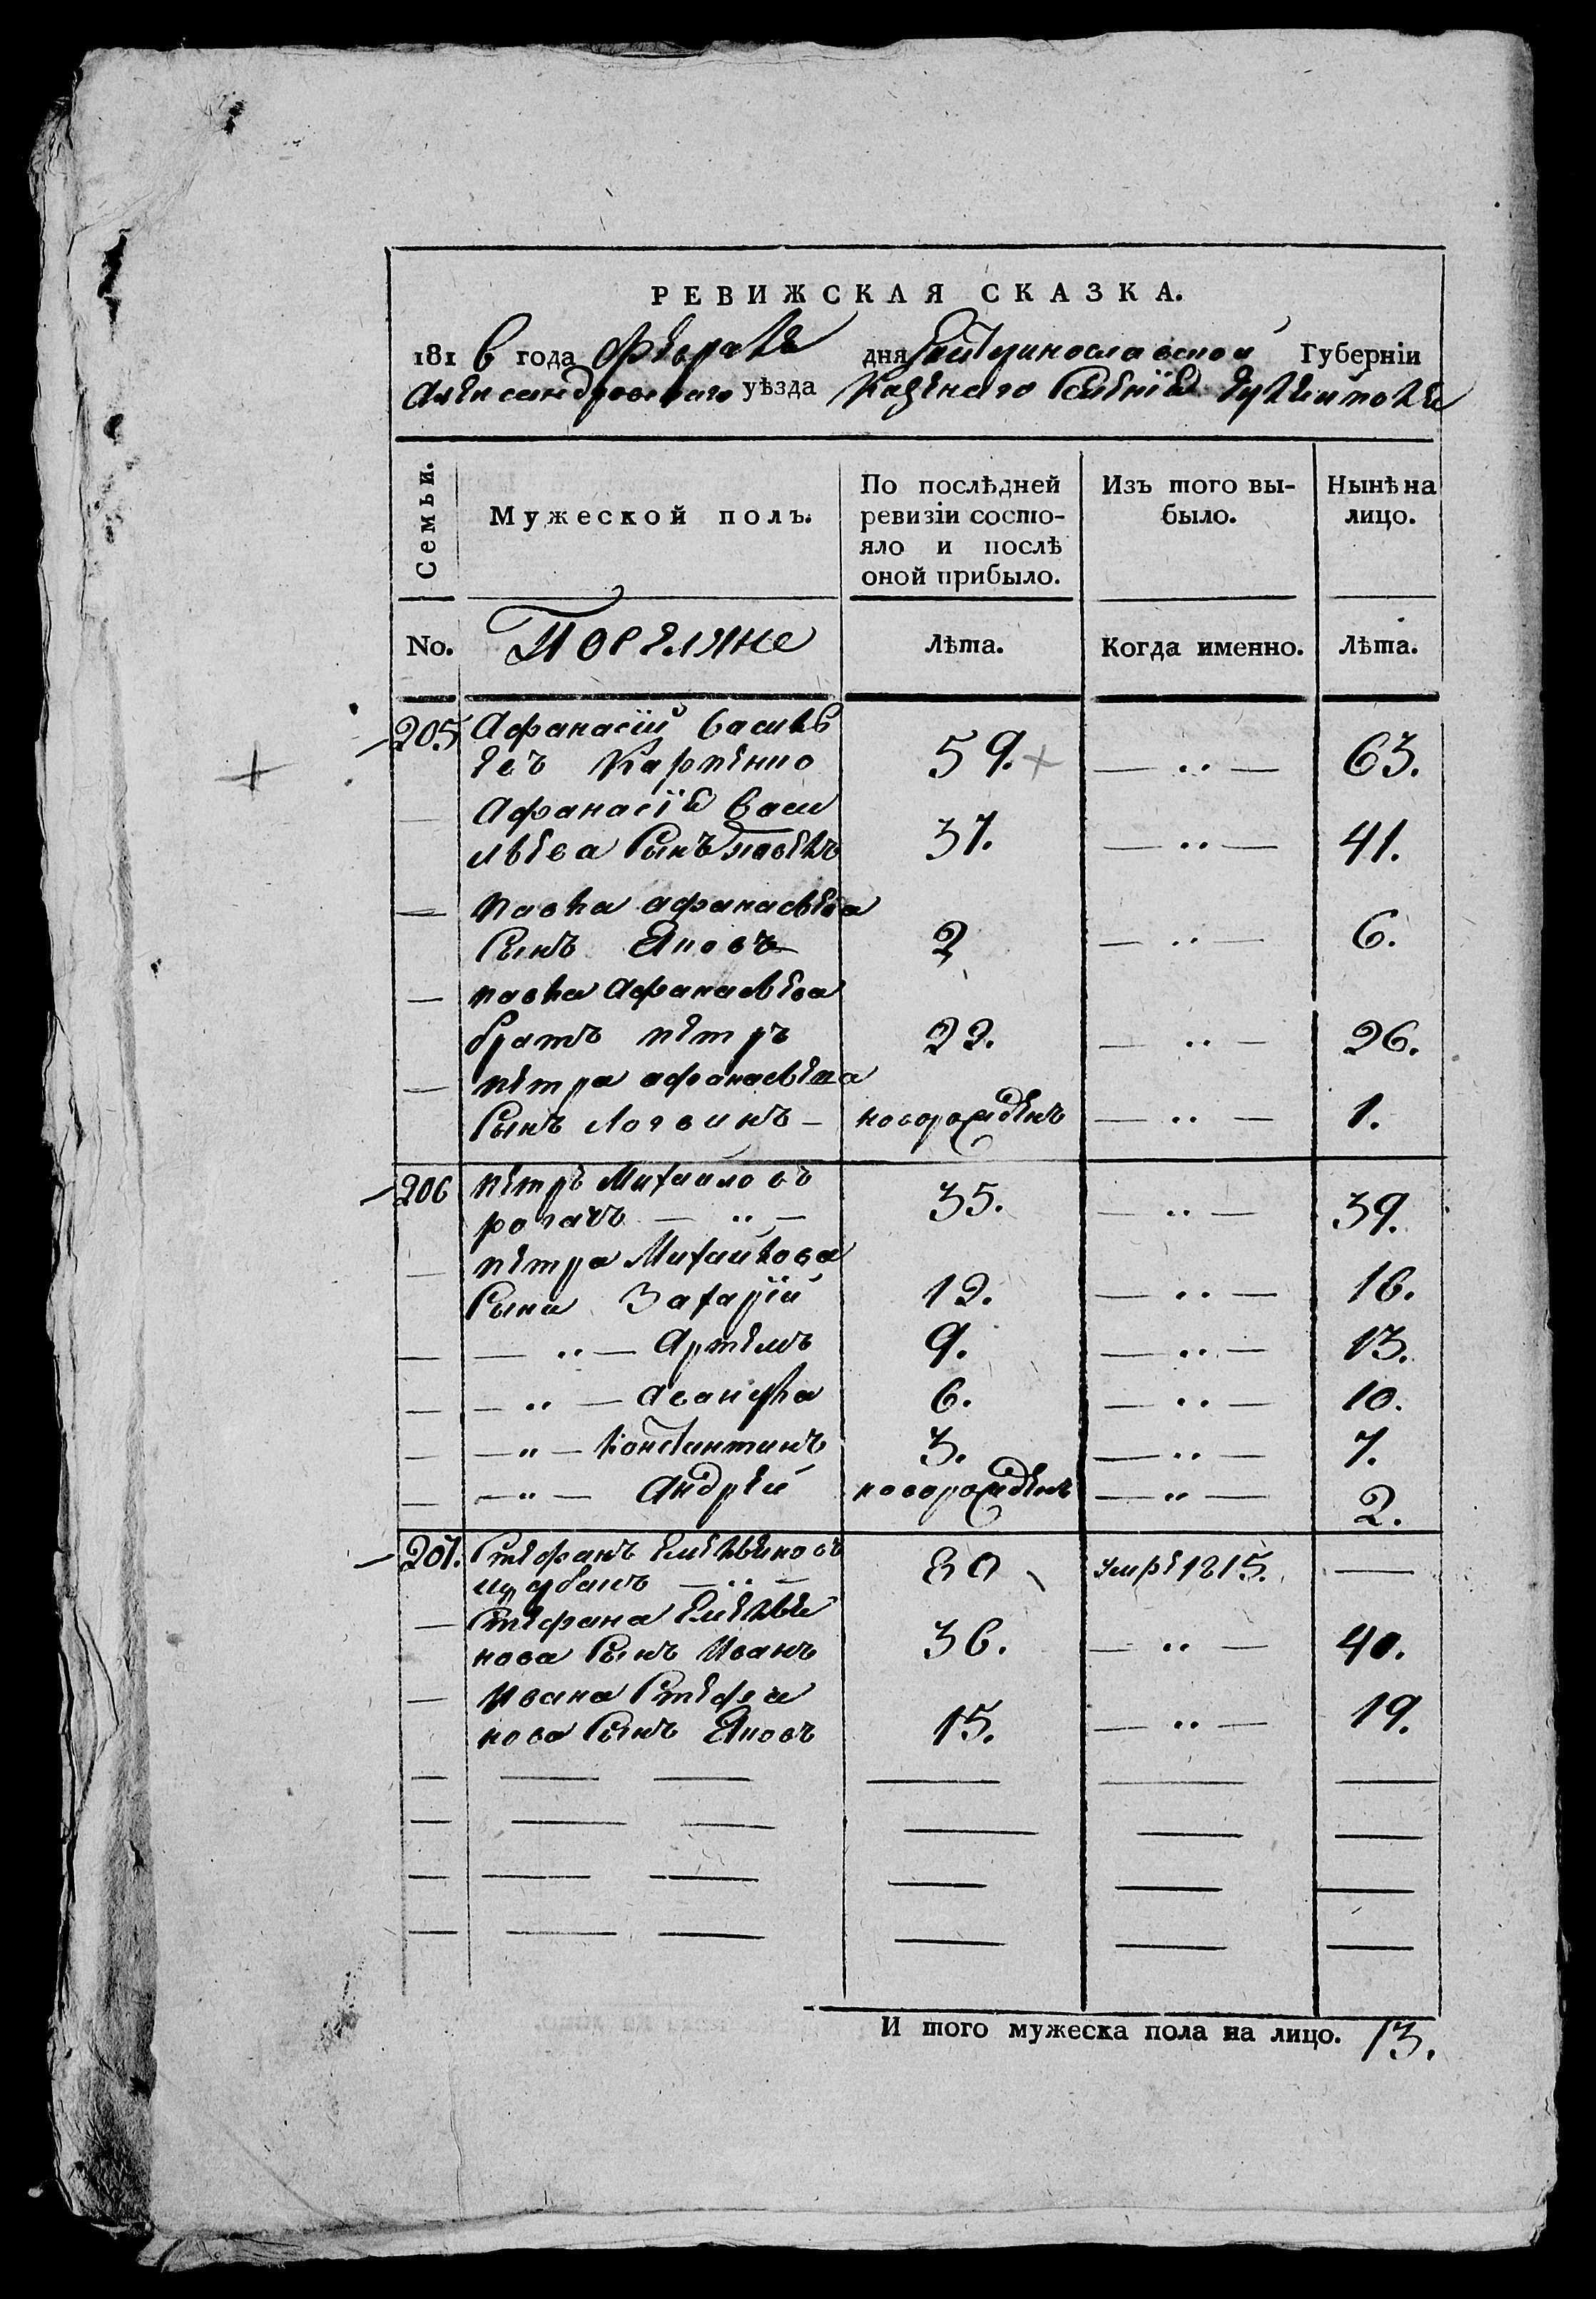 РЕВИЖСКАЯ СКАЗКА.
1816 года Февраля дня Екатеринославской Губерніи
Александровскаго уѣзда Казеннаго Селенія Гуляйполя
Семьи.
Мужеской полъ.
По послѣдней ревизіи состояло и послѣ оной прибыло.
Изъ того выбыло.
Нынѣ на лицо.
No. Поселяне Лѣта. Когда именно. Лѣта.
205 Афанасій Василь
евъ Карпенко 59. — ·· — 63.
— Афанасія Васи
льева Сынъ Павелъ 37. — ·· — 41.
— Павла Афанасьева
Сынъ Яковъ 2 — ·· — 6.
— Павла Афанасьева
братъ Петръ 22. — ·· — 26.
— Петра Афанасьева
Сынъ Логвинъ — новорожденъ — ·· — 1.
206 Петръ Михайловъ
рогачъ — ·· — 35. — ·· — 39.
— Петра Михайлова
Сыны Захарій 12. — ·· — 16.
— — ·· — Артемъ 9. — ·· — 13.
— — ·· — 6. — ·· — 10.
— — ·· — Константинъ 3. — ·· — 7.
— — ·· — Андрей новорожденъ — ·· — 2.
207. Стефанъ Емельяновъ
— ·· — 80 умре 1815. —
— Стефана Емелья
нова Сынъ Иванъ 36. — ·· — 40.
— Ивана Стефа
нова Сынъ Яковъ 15. — ·· — 19.
И того мужеска пола на лицо. 13.